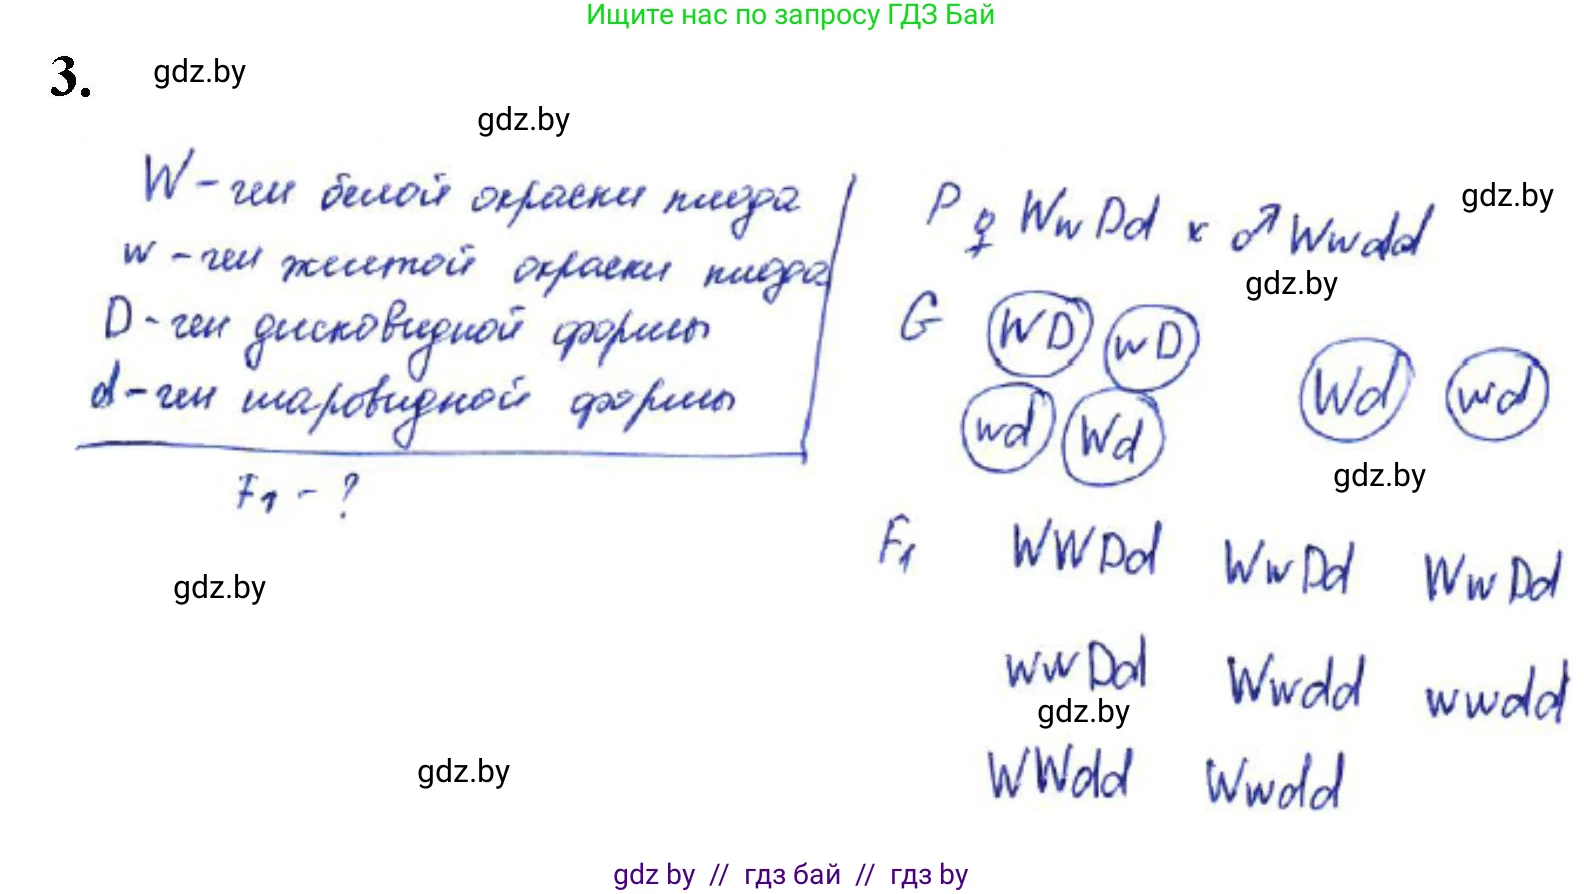 Ищите нас по запросу ГДЗ Бай
3.
gdz.by
gdz.by
W - ген белой окраски плода
w - ген желтой окраски плода
D - ген дисковидной формы
d - ген шаровидной формы
F₁ - ?
gdz.by
gdz.by
P ♀ WwDd x ♂ Wwdd
gdz.by
gdz.by
G WD wD
wd Wd Wd wd
gdz.by
F₁ WWDd WwDd WwDd
wwDd Wwdd wwdd
gdz.by
WWdd Wwdd
gdz by // гдз бай // гдз by